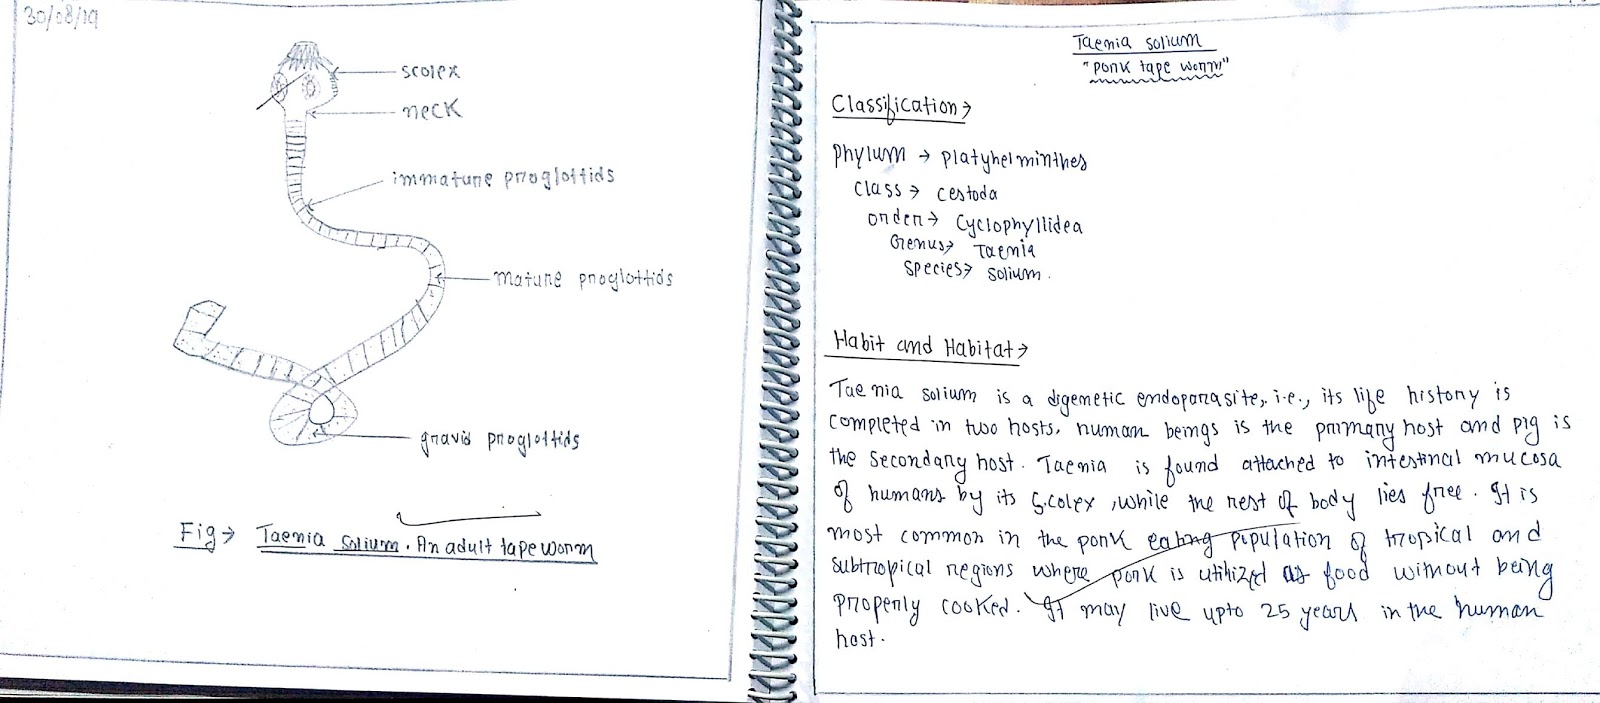 30/08/19
scolex
neck
immature proglottids
mature proglottids
gravid proglottids
Fig→ Taenia solium. An adult tape worm
Taenia solium
"Pork tape worm"
Classification→
Phylum → Platyhelminthes
Class→ Cestoda
Order→ Cyclophyllidea
Genus→ Taenia
Species→ Solium.
Habit and Habitat→
Taenia solium is a digenetic endoparasite, i.e., its life history is
completed in two hosts, human beings is the primary host and pig is
the secondary host. Taenia is found attached to intestinal mucosa
of humans by its scolex, while the rest of body lies free. It is
most common in the pork eating population of tropical and
subtropical regions where pork is utilized as food without being
properly cooked. It may live upto 25 years in the human
host.